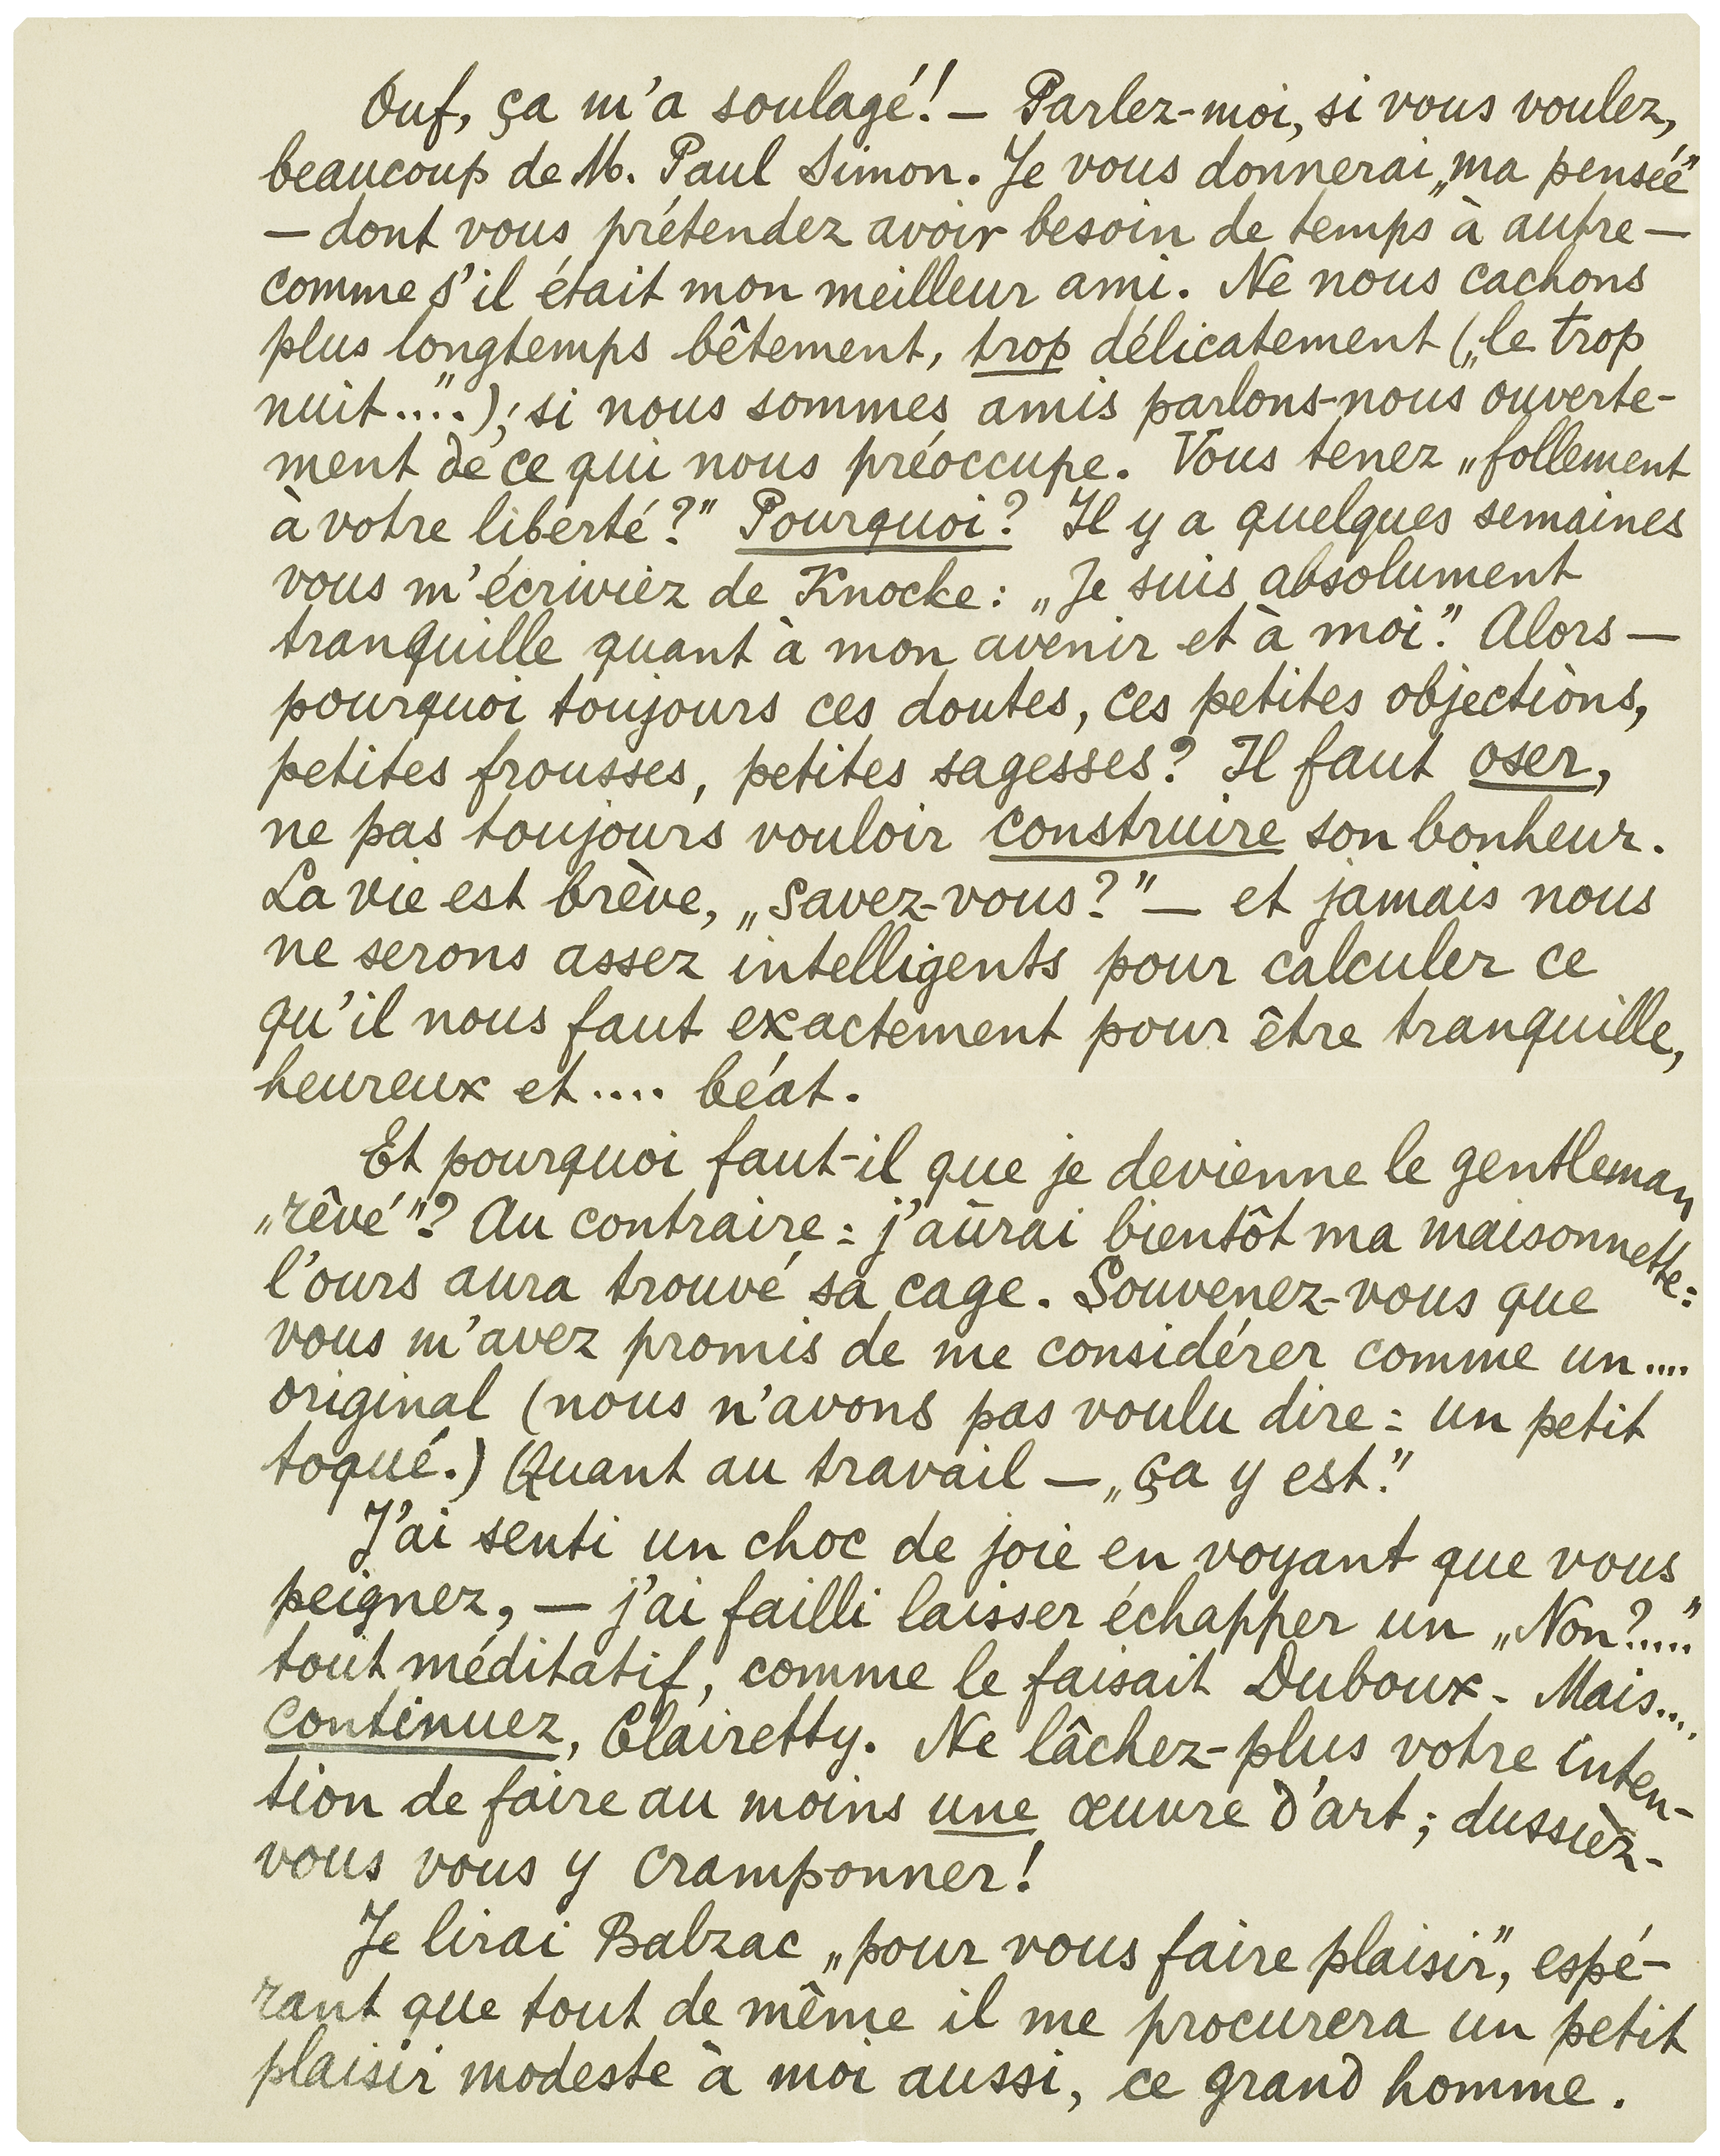 Ouf, ça m'a soulagé! — Parlez-moi, si vous voulez,
beaucoup de M. Paul Simon. Je vous donnerai „ma pensée"
— dont vous prétendez avoir besoin de temps à autre —
comme s'il était mon meilleur ami. Ne nous cachons
plus longtemps bêtement, trop délicatement („le trop
nuit...."); si nous sommes amis parlons-nous ouverte-
ment de ce qui nous préoccupe. Vous tenez „follement
à votre liberté?" Pourquoi? Il y a quelques semaines
vous m'écriviez de Knocke: „Je suis absolument
tranquille quant à mon avenir et à moi." Alors —
pourquoi toujours ces doutes, ces petites objections,
petites frousses, petites sagesses? Il faut oser,
ne pas toujours vouloir construire son bonheur.
La vie est brève, „savez-vous?" — et jamais nous
ne serons assez intelligents pour calculer ce
qu'il nous faut exactement pour être tranquille,
heureux et.... béat.
Et pourquoi faut-il que je devienne le gentleman
„rêvé"? Au contraire: j'aurai bientôt ma maisonnette:
l'ours aura trouvé sa cage. Souvenez-vous que
vous m'avez promis de me considérer comme un....
original (nous n'avons pas voulu dire: un petit
toqué.) Quant au travail — „ça y est."
J'ai senti un choc de joie en voyant que vous
peignez, — j'ai failli laisser échapper un „Non?....."
tout méditatif, comme le faisait Duboux - Mais....
continuez, Clairetty. Ne lâchez-plus votre inten-
tion de faire au moins une œuvre d'art; dussiez-
vous vous y cramponner!
Je lirai Balzac „pour vous faire plaisir", espé-
rant que tout de même il me procurera un petit
plaisir modeste à moi aussi, ce grand homme.